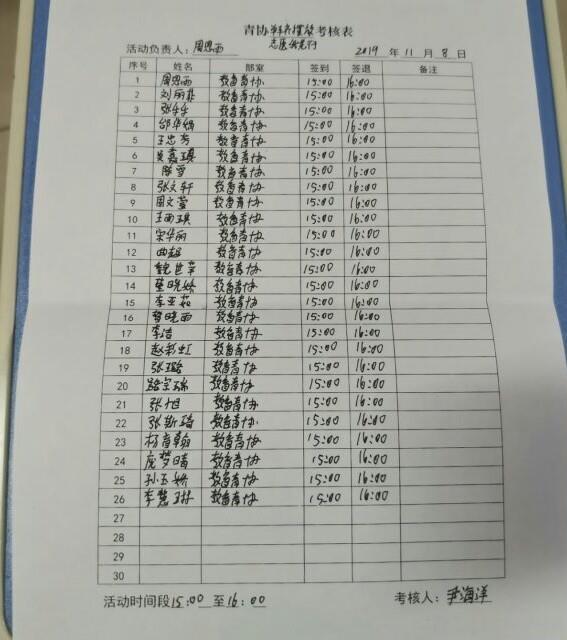 青协 考核表
活动负责人：周恩西 2019 年 11 月 8 日
序号 姓名 部室 签到 签退 备注
1 周恩西 教育青协 15:00 16:00
2 刘丽菲 教育青协 15:00 16:00
3 张千千 教育青协 15:00 16:00
4 邰华娟 教育青协 15:00 16:00
5 王忠芳 教育青协 15:00 16:00
6 吴嘉瑛 教育青协 15:00 16:00
7 雪 教育青协 15:00 16:00
8 张文轩 教育青协 15:00 16:00
9 周文萱 教育青协 15:00 16:00
10 王雨琪 教育青协 15:00 16:00
11 宋华丽 教育青协 15:00 16:00
12 曲超 教育青协 15:00 16:00
13 教育青协 15:00 16:00
14 董晓娇 教育青协 15:00 16:00
15 李亚茹 教育青协 15:00 16:00
16 曹晓雨 教育青协 15:00 16:00
17 李洁 教育青协 15:00 16:00
18 赵彩虹 教育青协 15:00 16:00
19 张璐 教育青协 15:00 16:00
20 路宝瑞 教育青协 15:00 16:00
21 张旭 教育青协 15:00 16:00
22 张斯琦 教育青协 15:00 16:00
23 杨育翰 教育青协 15:00 16:00
24 庞梦晴 教育青协 15:00 16:00
25 孙玉娇 教育青协 15:00 16:00
26 李慧琳 教育青协 15:00 16:00
27
28
29
30
活动时间段15:00 至16:00 考核人：尹海洋